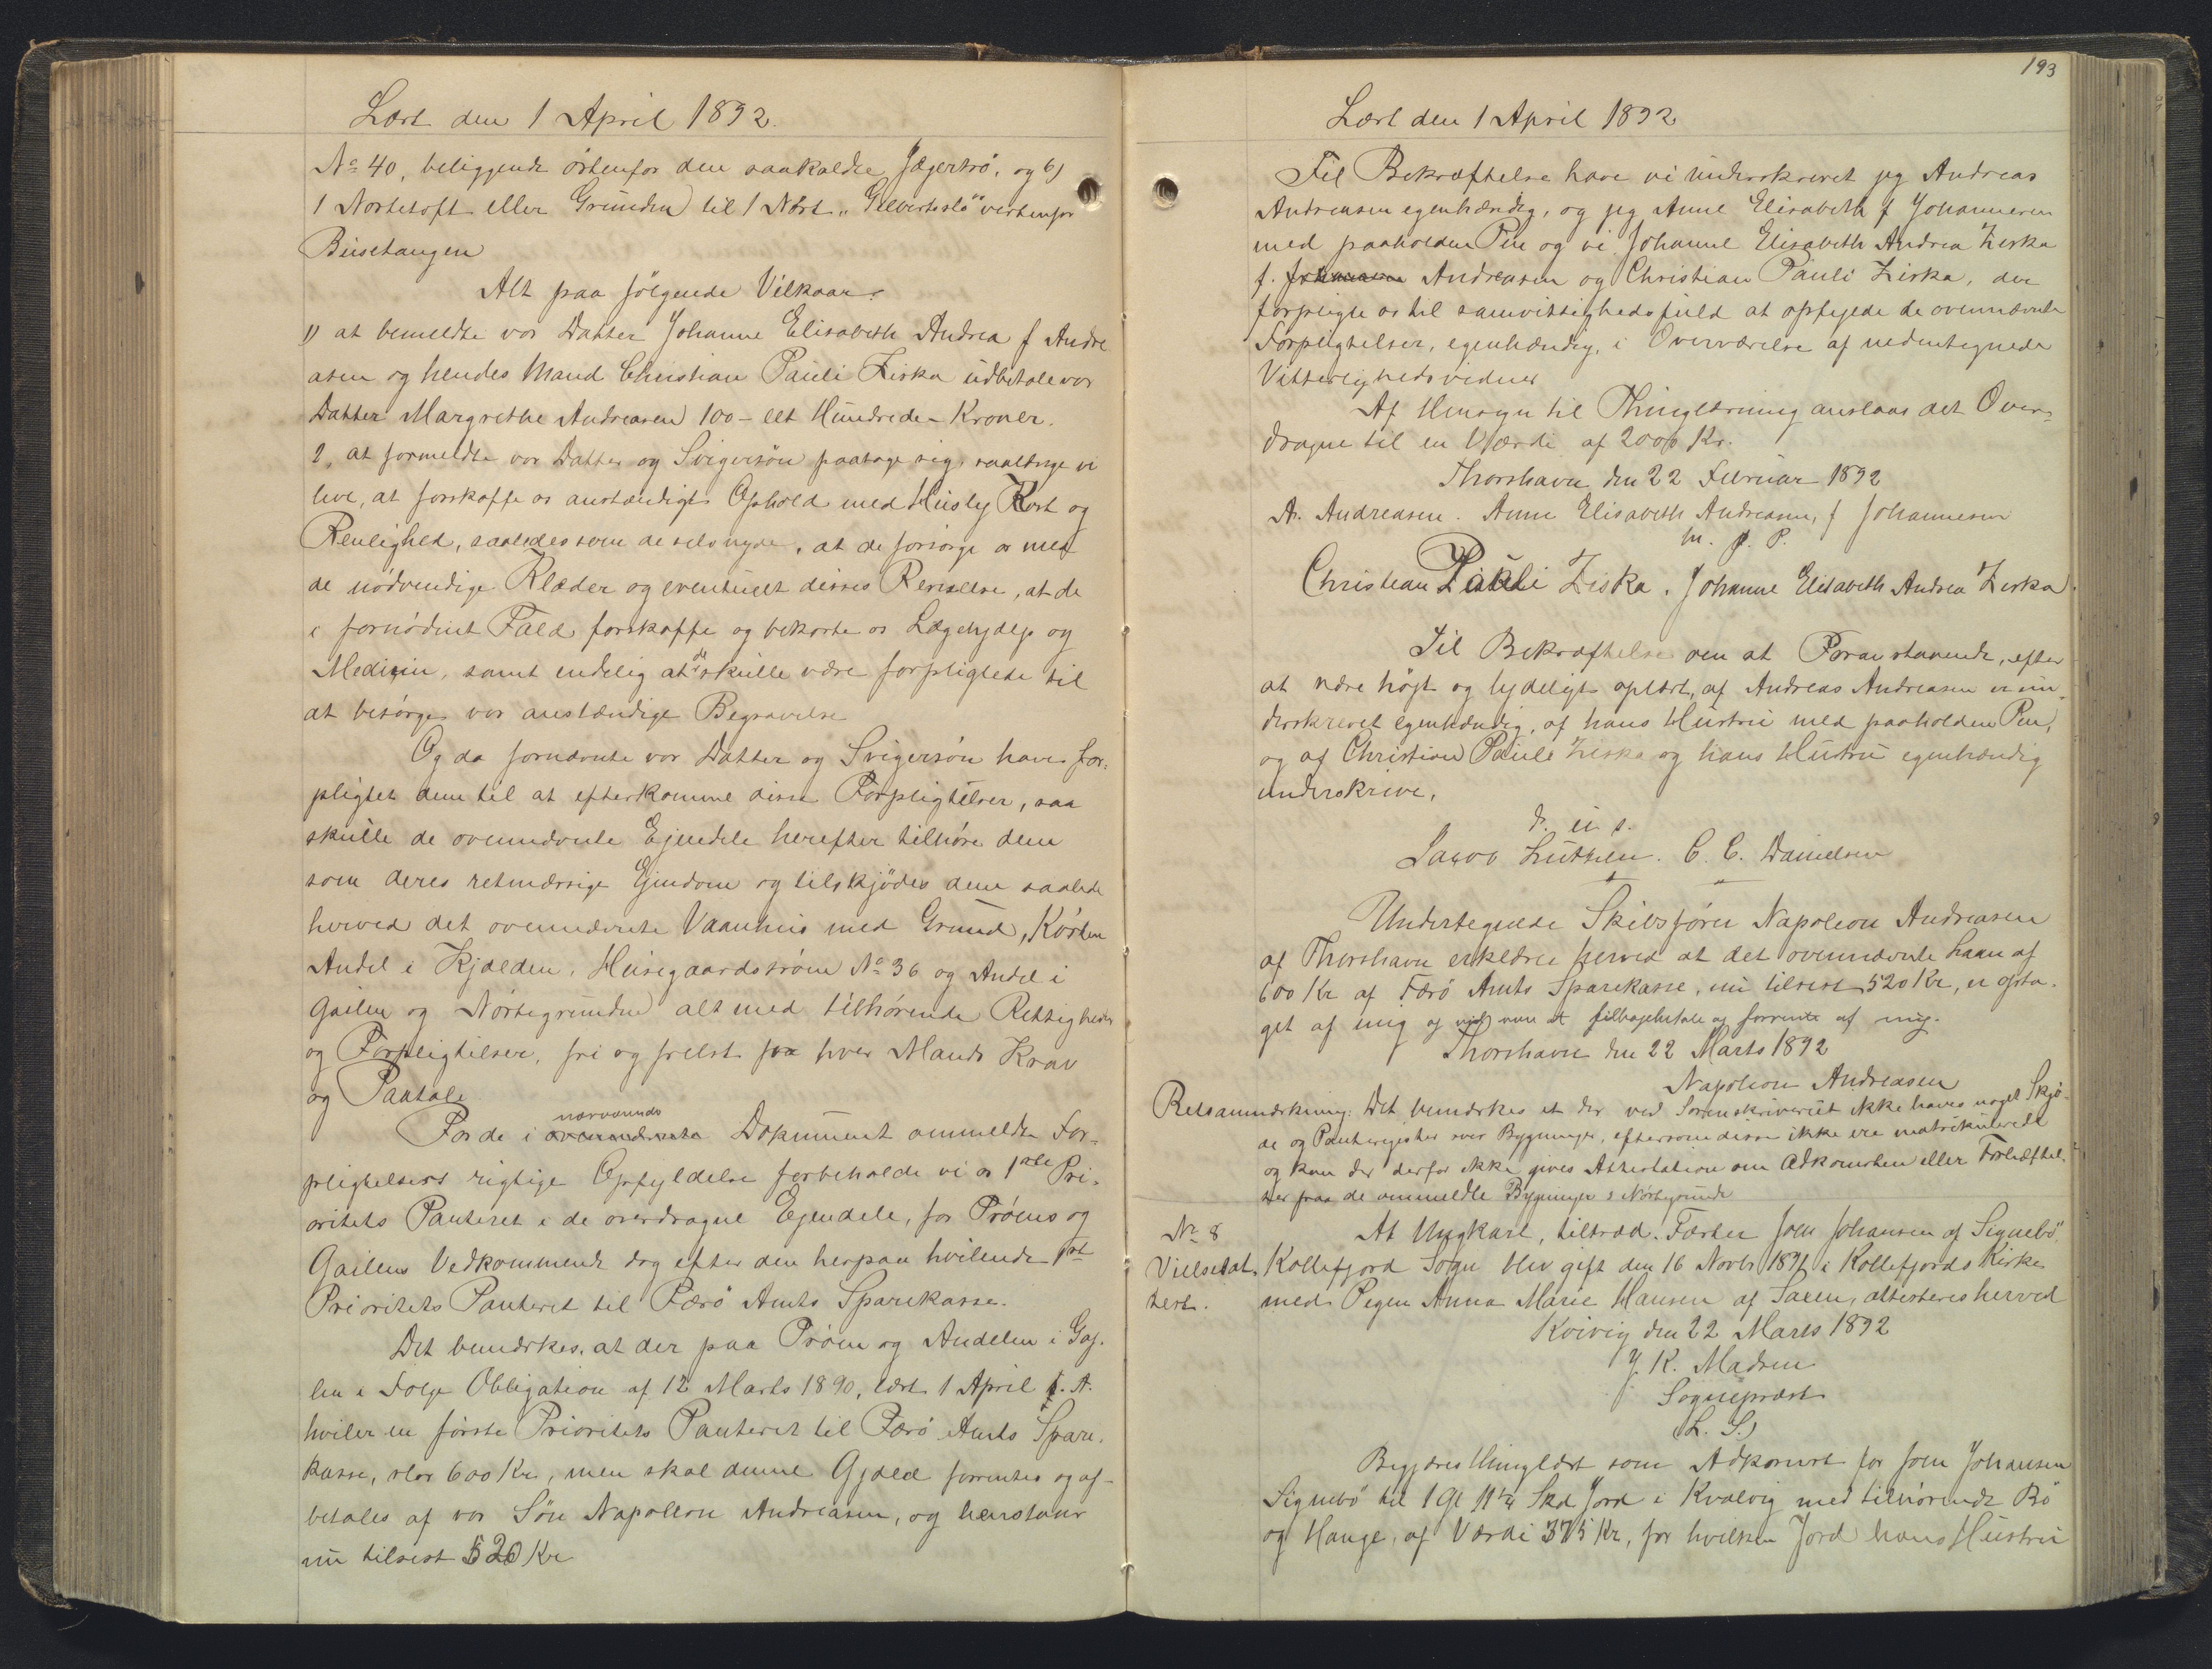 Læst den 1 April 1892.
No 40, beliggende østenfor den saakaldte Jægertrö, og 6)
1 Nørstetoft eller Grunden til 1 Nørst „Gilbertsslö“ vestenfor
Büsetangen
Alt paa følgende Vilkaar:
1) at bemeldte vor Datter Johanne Elisabeth Andrea f Andre
asen og hendes Mand Christian Pauli Ziska udbetale vor
Datter Margrethe Andreasen 100 - et Hundrede - Kroner.
2, at formeldte vor Datter og Svigersön paatage sig, saalænge vi
leve, at forskaffe os anstændigt Ophold med Husly Kost og
Renlighed, saaledes som de selv nyde, at de forsørge os med
de nödvendige Klæder og eventuelt disses Renselse, at de
i fornödent Fald forskaffe og bekoste os Lægehjælp og
Medizin, samt endelig at de skulle være forpligtede til
at besörge vor anstændige Begravelse
Og da fornævnte vor Datter og Svigersön have for-
pligtet dem til at efterkomme disse Forpligtelser, saa
skulle de ovennævnte Ejendele herefter tilhöre dem
som deres retmæssige Ejendom og tilskjödes dem saalede
herved det ovennævnte Vaanhus med Grund,
Andel i Kjælden, Husegaardströen No 36 og Andel i
Gailen og Nörstegrunden alt med tilhørende Rettigheder
og Forpligtelser, fri og frelst for hver Mands Krav
og Paatale.
For de i ovennævnte nærværende Dokument ommeldte For-
pligtelsers rigtige Opfyldelse forbeholde vi os 1ste Pri-
oritets Panteret i de overdragne Ejendele, for Tröens og
Gailens Vedkommende dog efter den herpaa hvilende 1st
Prioritets Panteret til Færö Amts Sparekasse.
Det bemærkes, at der paa Tröen og Andelen i Gaj-
len i Følge Obligation af 12 Marts 1890, læst 1 April s. A.
hviler en første Prioritets Panteret til Færö Amts Spare-
kasse, stor 600 Kr, men skal denne Gjæld forrentes og af-
betales af vor Sön Napoleon Andreasen, og henstaar
nu tilrest 520 Kr
193
Læst den 1 April 1892
Til Bekræftelse have vi underskrevet jeg Andreas
Andreasen egenhændig, og jeg Anne Elisabeth f Johannesen
med paaholden Pen og vi Johanne Elisabeth Andrea Ziska
f. Johannesen Andreasen og Christian Pauli Ziska, der
forpligte os til samvittighedsfuld at opfylde de ovennævnte
Forpligtelser, egenhændig, i Overværelse af nedentegnede
Vitterlighedsvidner
Af Hensyn til Thinglæsning anslaas det Over-
dragne til en Værdi af 2000 Kr.
Thorshavn den 22 Februar 1892
A. Andreasen. Anne Elisabeth Andreasen, f Johannesen
m. p. P.
Christian Pauli Ziska. Johanne Elisabeth Andrea Ziska.
Til Bekræftelse om at Foranstaaende, efter
at være højt og tydeligt oplæst, af Andreas Andreasen er un-
derskrevet egenhændig, af hans Hustru med paaholden Pen,
og af Christian Pauli Ziska og hans Hustru egenhændig
underskrive.
d. u. s.
Jacob Lützen. C. C. Danielsen
Undertegnede Skibsfører Napoleon Andreasen
af Thorshavn erklærer herved at det ovennævnte Laan af
600 Kr af Færö Amts Sparekasse, nu tilrest 520 Kr, er opta-
get af mig og vil være at tilbagebetale og forrente af mig.
Thorshavn den 22 Marts 1892
Napoleon Andreasen
Retsanmærkning: Det bemærkes at der ved Sorenskriveriet ikke haves noget Skjö-
de og Panteregister over Bygninger, eftersom disse ikke ere matrikulerede
og kan der derfor ikke gives Attestation om Adkomsten eller Forhæftel-
ser paa de ommeldte Bygninger & Nørstegrunde
No 8
Vielsesat-
test.
At Ungkarl, tiltræd. Fæster Joen Johansen af Signebö
Kollefjord Sogn blev gift den 16 Novbr 1891 i Kollefjords Kirke
med Pigen Anna Marie Hansen af Saxen, attesteres herved
Kvivig den 22 Marts 1892
J. K. Madsen
Sognepræst
(L. S.)
Begjæres thinglæst som Adkomst for Joen Johansen
Signebö til 1 Gl 11 1/4 Skd Jord i Kvalvig med tilhørende Bö
og Hauge, af Værdi 375 Kr, for hvilken Jord hans Hustru